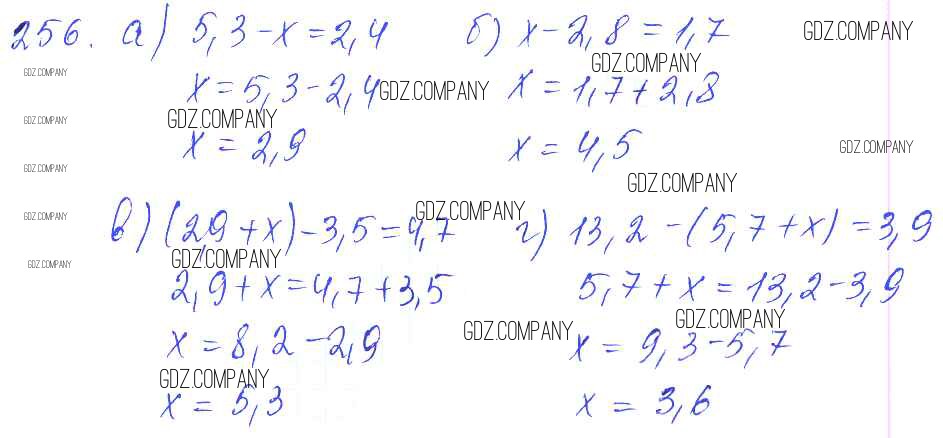 256. а) 5,3 - x = 2,4 б) x - 2,8 = 1,7 GDZ.COMPANY
GDZ.COMPANY GDZ.COMPANY
x = 5,3 - 2,4 GDZ.COMPANY x = 1,7 + 2,8
GDZ.COMPANY GDZ.COMPANY
x = 2,9 x = 4,5 GDZ.COMPANY
GDZ.COMPANY GDZ.COMPANY
GDZ.COMPANY GDZ.COMPANY
в) (2,9 + x) - 3,5 = 4,7 г) 13,2 - (5,7 + x) = 3,9
GDZ.COMPANY GDZ.COMPANY
2,9 + x = 4,7 + 3,5 5,7 + x = 13,2 - 3,9
GDZ.COMPANY GDZ.COMPANY
x = 8,2 - 2,9 x = 9,3 - 5,7
GDZ.COMPANY
x = 5,3 x = 3,6